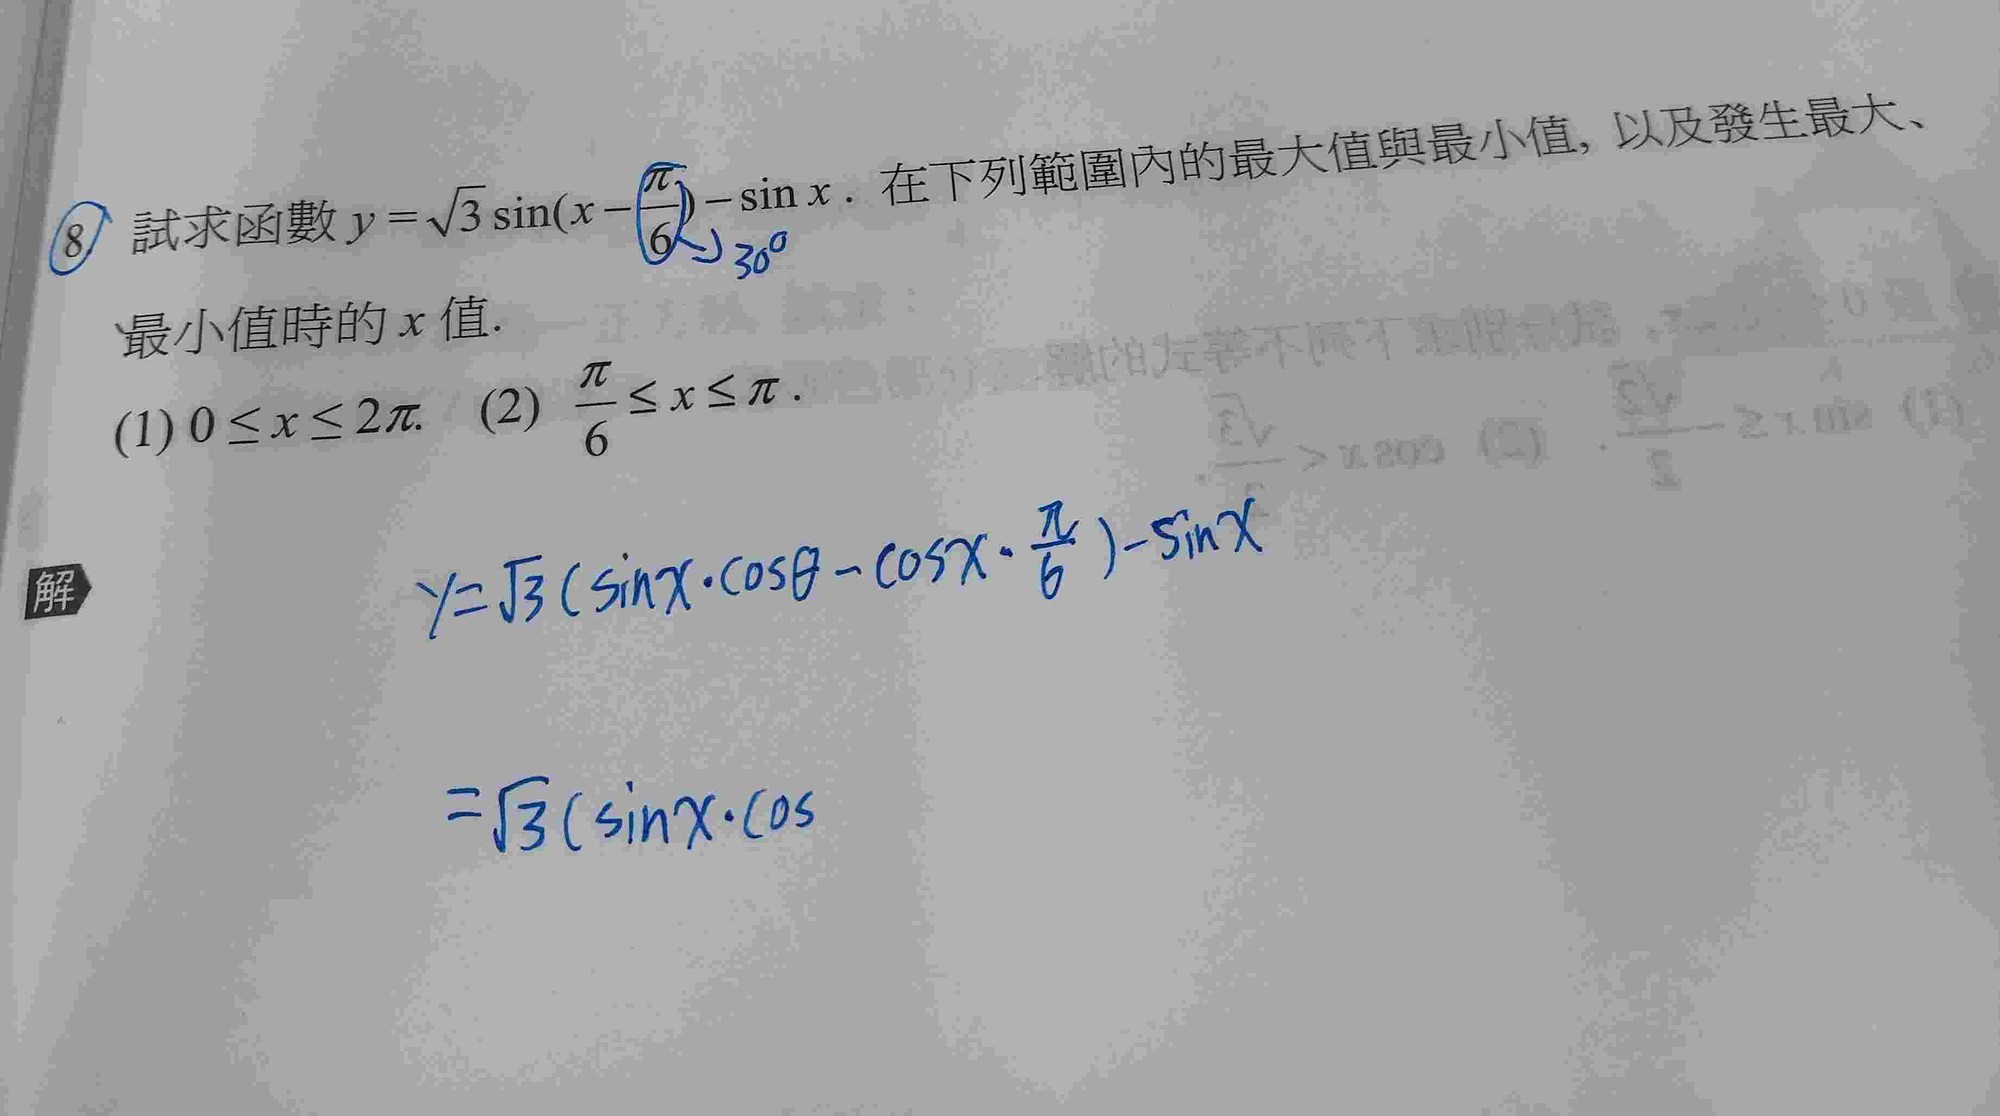 8 試求函數 y = √3 sin(x − π/6) − sin x . 在下列範圍內的最大值與最小值, 以及發生最大、
30°
最小值時的 x 值.
(1) 0 ≤ x ≤ 2π. (2) π/6 ≤ x ≤ π .
解
y = √3 ( sinx · cosθ − cosx · π/6 ) − sinx
= √3 ( sinx · cos